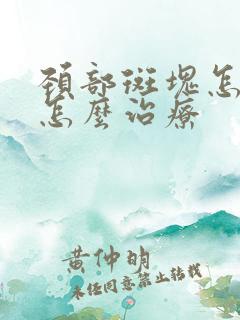 頸部斑塊怎
怎麼治療
黄仲明
未经同意禁止转载